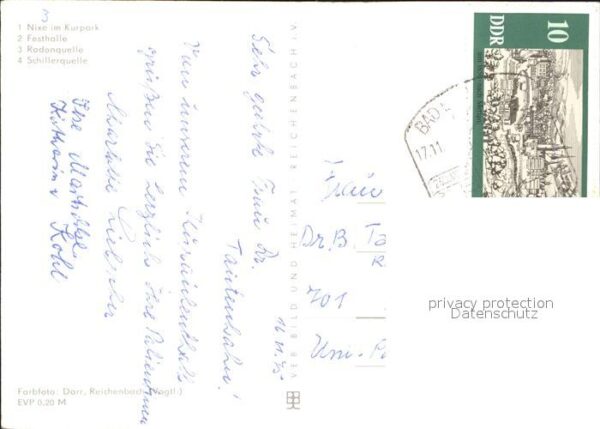 1 Nixe im Kurpark
2 Festhalle
3 Radonquelle
4 Schillerquelle
Sehr geehrte Frau Dr.
Tautenhahn!
16.11.75
Von unserem Kuraufenthalt
grüßen Sie herzlich Ihre Patientinnen
Ihre
Kohl
VEB BILD UND HEIMAT REICHENBACH I.V.
Farbfoto: Darr, Reichenbach (Vogtl.)
EVP 0,20 M
DDR 10
BAD
17.11
Frau
Dr. B. Ta
701
Uni-P
privacy protection
Datenschutz